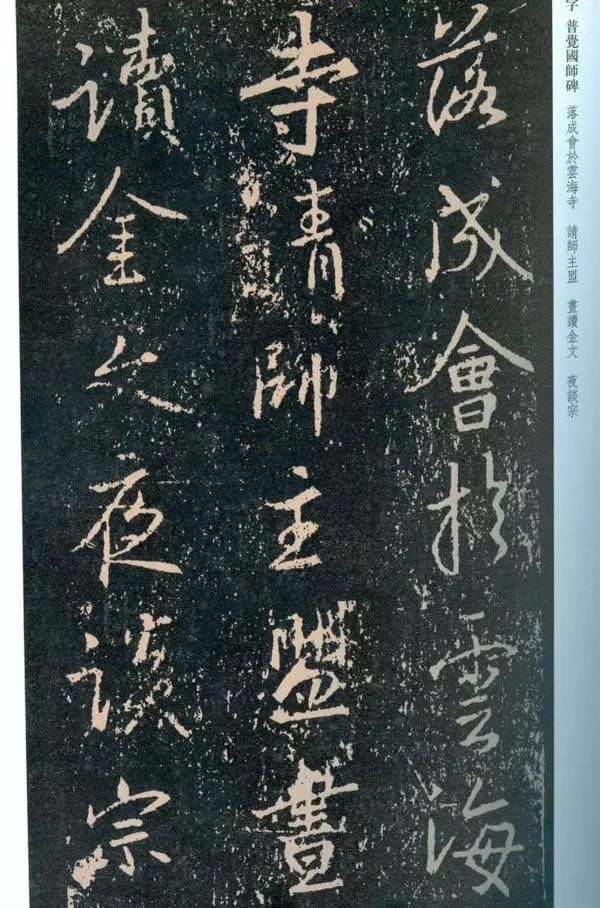 落成會於雲海
寺請師主盟晝
讀金文夜談宗
字 普覺國師碑 落成會於雲海寺 請師主盟 晝讀金文 夜談宗